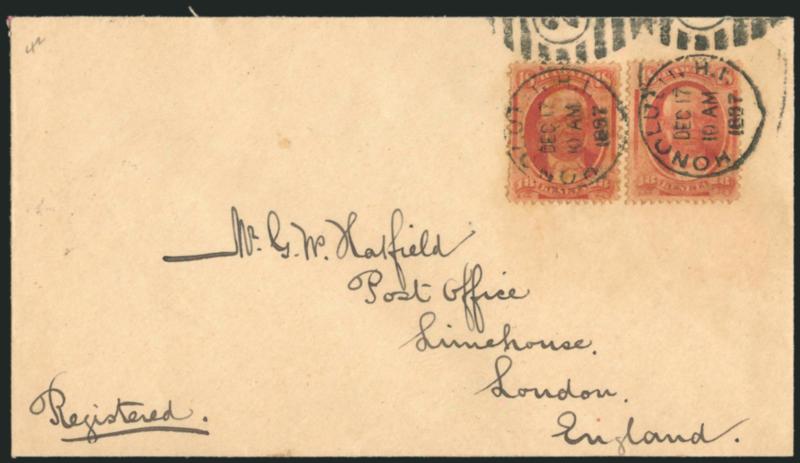 HONOLULU H.I.
DEC 17
10 AM
1897
HONOLULU H.I.
DEC 17
10 AM
1897
Mr. G. W. Hatfield
Post Office
Limehouse.
London.
England.
Registered.